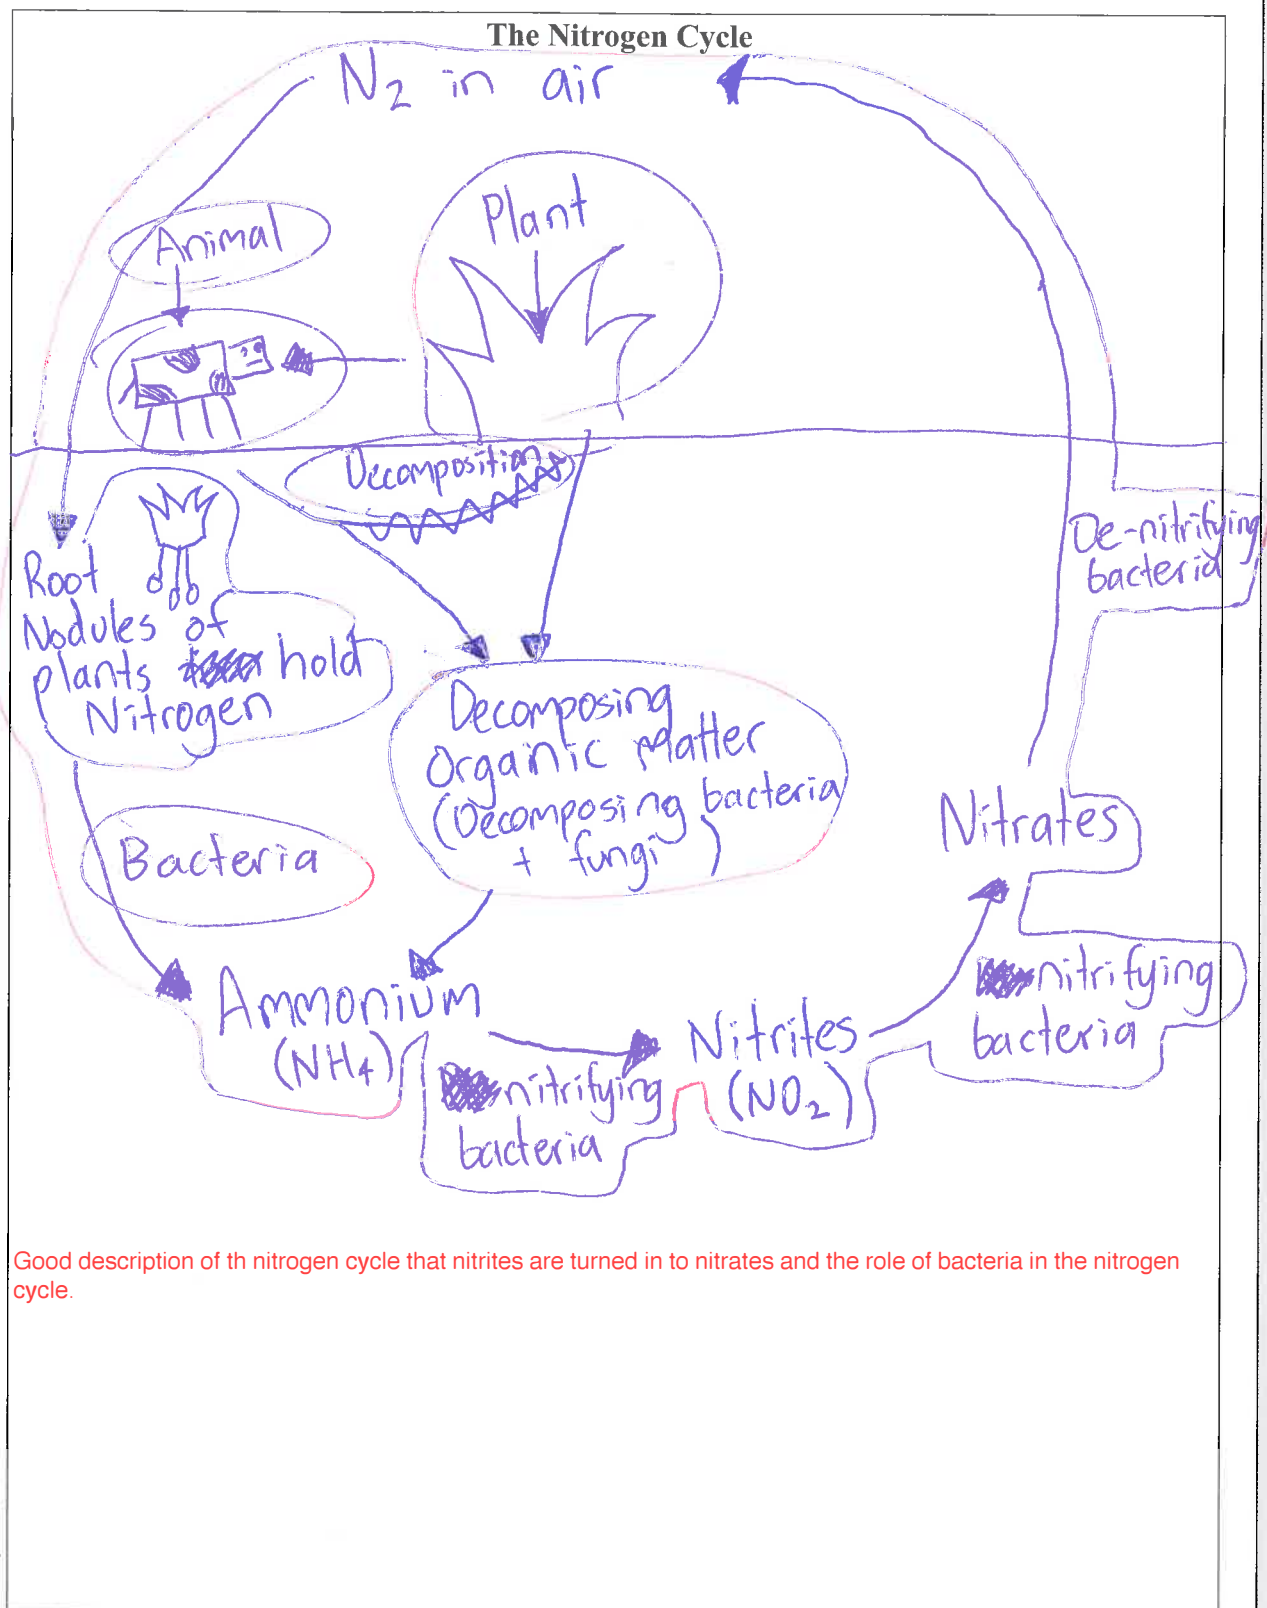 The Nitrogen Cycle
N2 in air
Plant
Animal
Decomposition
De-nitrifying
bacteria
Root
Nodules of
plants hold
Nitrogen
Decomposing
Organic Matter
(Decomposing bacteria
+ fungi)
Nitrates
Bacteria
nitrifying
bacteria
Ammonium
(NH4)
Nitrites
(NO2)
nitrifying
bacteria
Good description of th nitrogen cycle that nitrites are turned in to nitrates and the role of bacteria in the nitrogen
cycle.